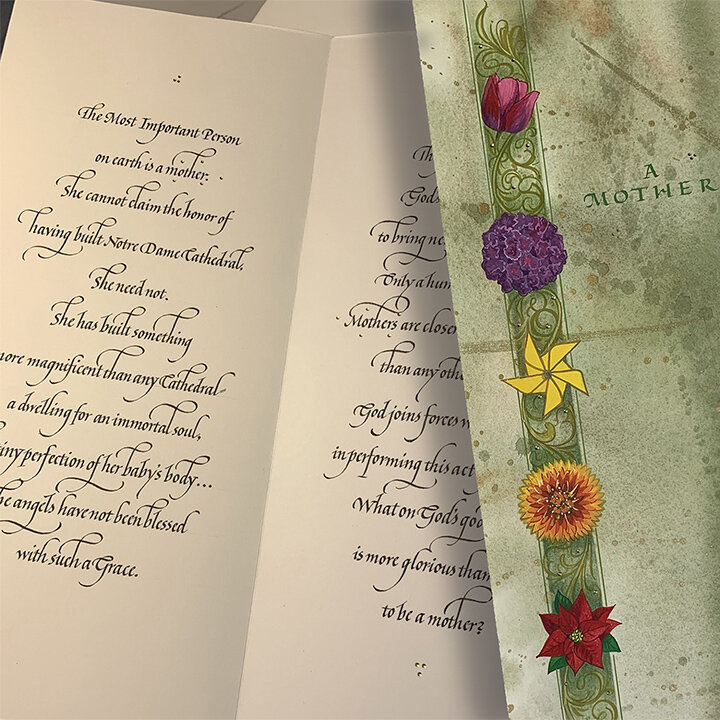 The Most Important Person
on earth is a mother.
She cannot claim the honor of
having built Notre Dame Cathedral.
She need not.
She has built something
magnificent than any Cathedral-
a dwelling for an immortal soul,
perfection of her baby's body...
angels have not been blessed
with such a Grace.
God's
to bring
Only a
Mothers are closer
than any
God joins forces
in performing this act
What on God's
is more glorious than
to be a mother?
A
MOTHER